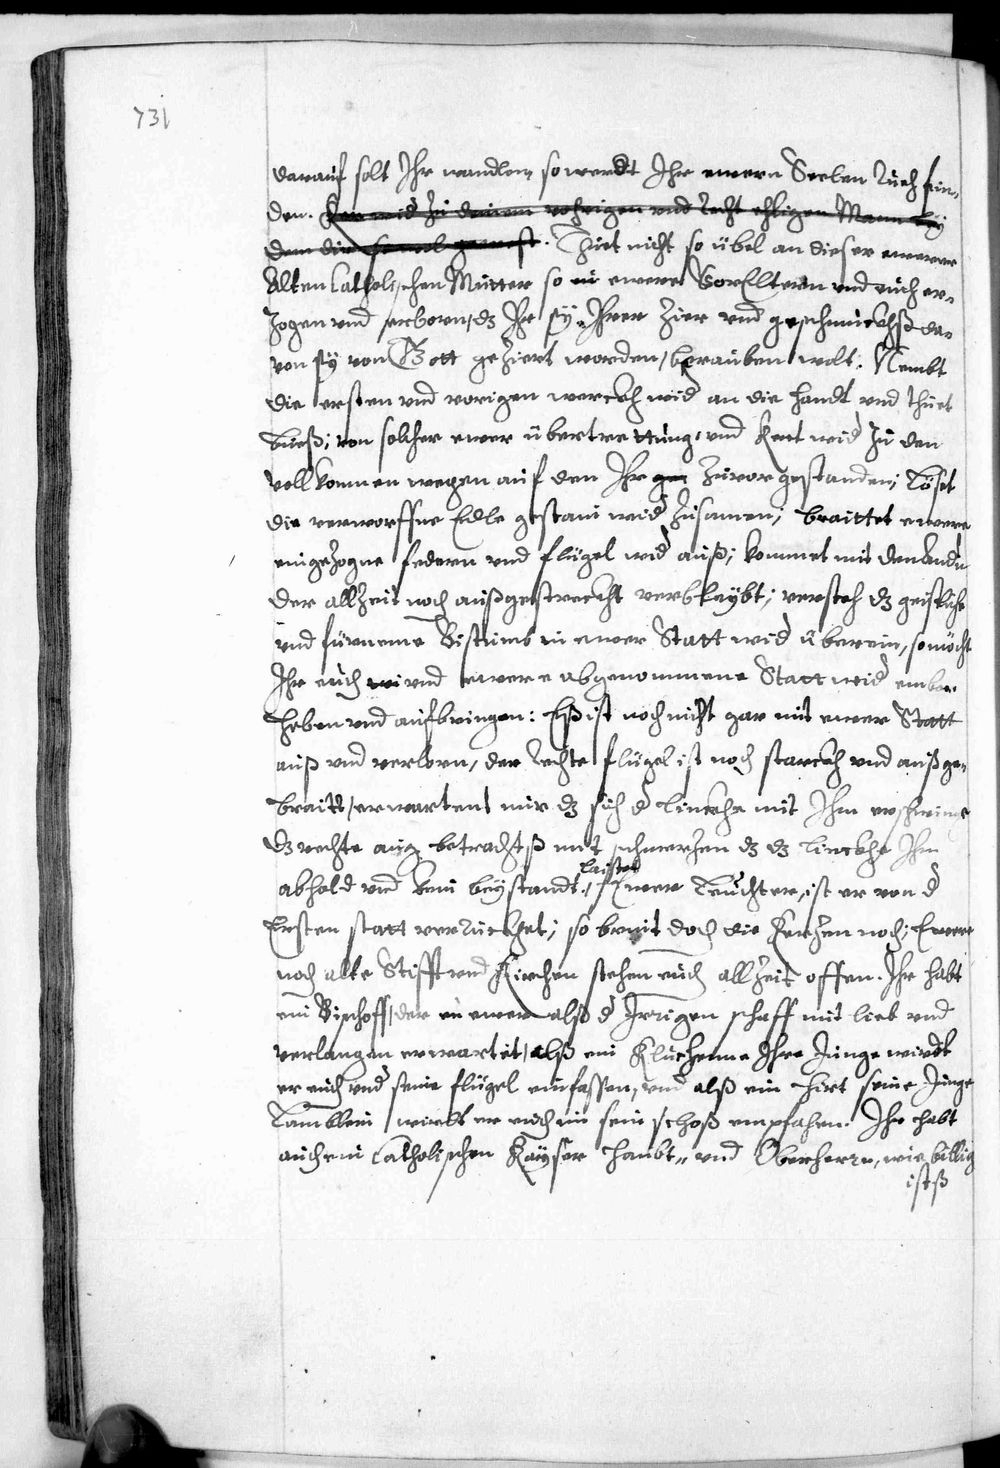 731
darauf solt Ihr wandlen, so werdt Ihr ewern Seelen Rueh fin-
den. Ker wid zu deinem vohrigen und recht ehligen Mann by
dem dir so wol gewest. Thuet nicht so übel an dieser ewerer
Alten Catholischen Mutter so in ewere VorElltern und euch er-
zogen und erborn, dz Ihr sÿ Ihrer Zier und geschmuckhß da-
von sÿ von Gott geziert worden, berauben wolt. Nembt
die ersten und vorigen werckh wid an die handt und thuet
bueß; von solcher ewer übertrettung, und Kert wid zu den
vollkommen wegen auf den Ihr gen zuvor gestanden; Löset
die verworffne Edle gestain wid zusamen; braittet ewere
eingezogne federn und flügel wid auß; kommet mit
der allzeit noch außgestreckht verbleÿbt; versteh dz geistliche
und fürneme Bistumb in ewer Statt wid überein, so möcht
Ihr euch wi und ewere abgenommene Statt wid embor
heben und aufbringen: Eß ist noch nicht gar mit ewer Statt
auß und verlorn, der rechte flügel ist noch starckh und außge-
braitt, erwartent nur dz sich d linckhe mit Ihm erschwing
dz rechte aug betrachtß mit schmerzen dz dz linckhe Ihm
abhold und kein beÿstandt laistet, Ewer Leuchter, ist er von d
Ersten statt verruckhet; so brint doch die Kerzen noch; Ewere
noch alte Stifft und Kirchen stehen euch allzeit offen. Ihr habt
ein Bischoff, der in ewer alß d Irrigen schaff mit lieb und
verlangen erwartet, alß ein Kluckhenne Ihre Junge wirdt
er euch und seine flügel einfassen, und alß ein Hirt seine Junge
Lamblein wirdt er euch in sein schoß empfahen. Ihr habt
auch ein Catholischen Kaÿser Haubt- und Oberherrn, wie billig
istß